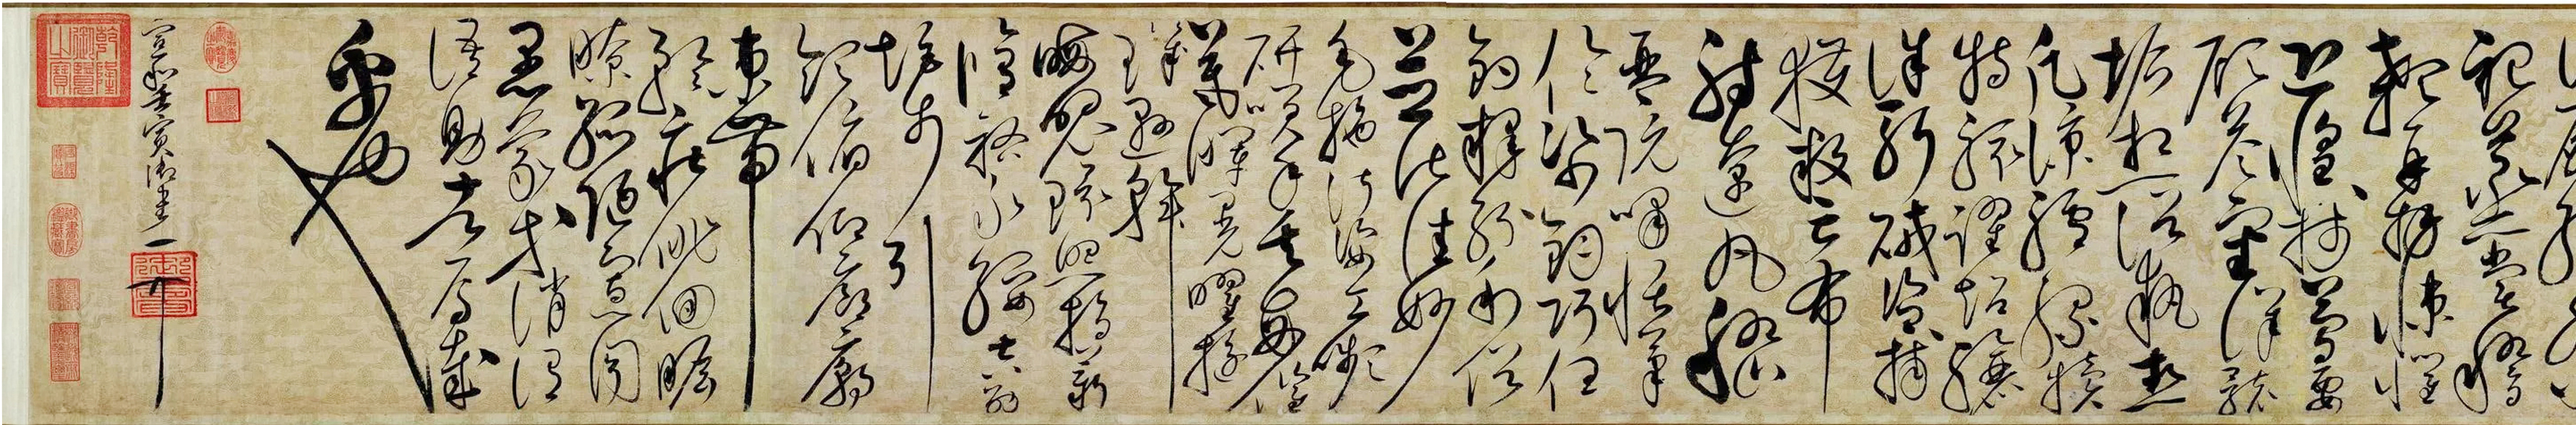 祀蒸嘗稽
顙再拜悚懼
恐惶牋牒簡要
顧答審詳骸
垢想浴執熱
願涼驢騾犢
特駭躍超驤
誅斬賊盜捕
獲叛亡布
射遼丸嵇
琴阮嘯恬筆
倫紙鈞巧任
釣釋紛利俗
並皆佳妙
毛施淑姿工顰
妍笑年矢每催
羲暉晃曜旋
璣懸斡
晦魄環照指薪
修祜永綏吉劭
矩步引
領俯仰廊廟
束帶
矜莊徘徊瞻
眺孤陋寡聞
愚蒙等誚謂
語助者焉哉
乎也
宣和壬寅御書